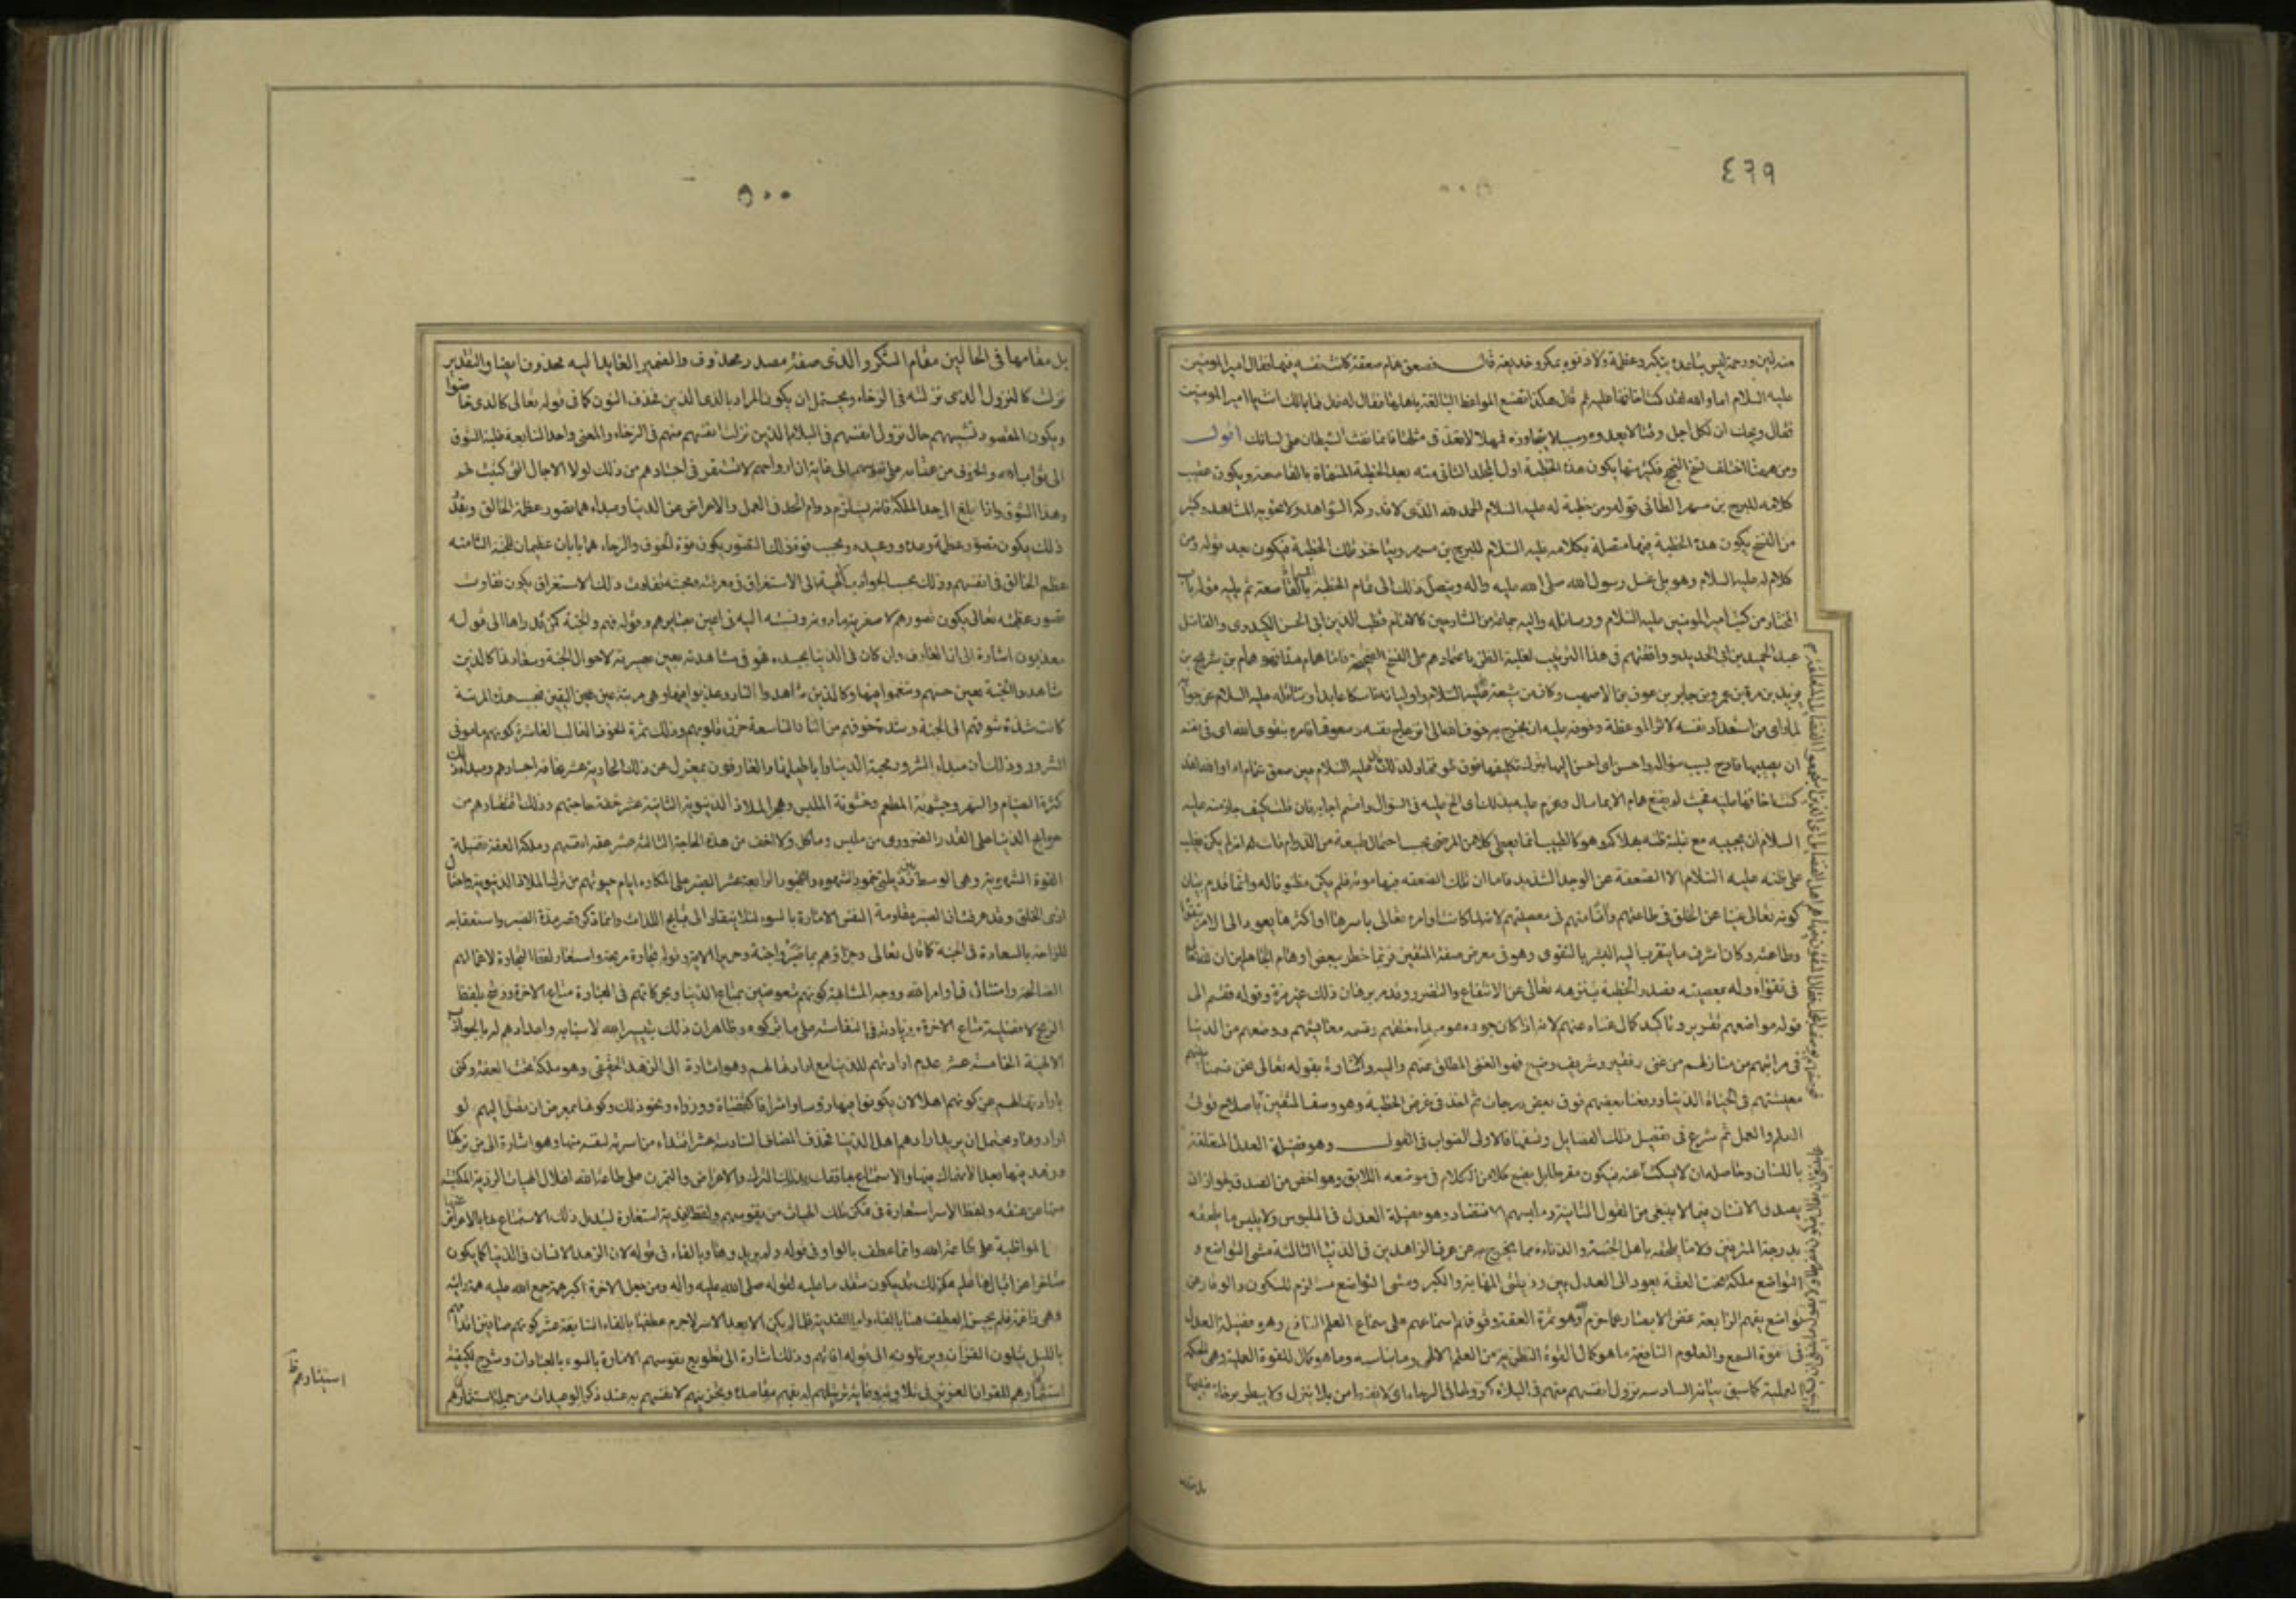 ٤٦٩
منه لين ورحمة ليس تباعده بتكبر وعظمة ولا دنوه بمكر وخديعة قال فصعق همام صعقة كانت نفسه فيها فقال امير المومنين
عليه السلام اما والله لقد كنت اخافها عليه ثم قال هكذا تصنع المواعظ البالغة باهلها فقال له قائل فما بالك انت يا امير المومنين
فقال ويحك ان لكل اجل وقتا لا يعدوه وسببا لا يتجاوزه فمهلا لا تعد في مثلها فانما نفث الشيطان على لسانك اقول
ومن ههنا اختلف نسخ النهج فكثير منها يكون هذه الخطبة اول المجلد الثاني منه بعد الخطبة المسماة بالقاصعة ويكون عقيب
كلامه للبرج بن مسهر الطائي قوله ومن خطبة له عليه السلام الحمد لله الذي لا تدركه الشواهد ولا تحويه المشاهد وكثير
من النسخ يكون هذه الخطبة فيها متصلة بكلامه عليه السلام للبرج بن مسهر ويتاخر تلك الخطبة فيكون بعد قوله ومن
كلام له عليه السلام وهو يلي غسل رسول الله صلى الله عليه واله ويتصل ذلك الى تمام الخطبة بالقاصعة ثم يليه قوله باب
المختار من كتب امير المومنين عليه السلام ورسائله واليه جماعة من الشارحين كالامام قطب الدين ابي الحسن الكيدري والفاضل
عبد الحميد بن ابي الحديد ووافقتهم في هذا الترتيب لغلبة الظن باعتمادهم على النسخ الصحيحة فاما همام هذا فهو همام بن شريح بن
يزيد بن مرة بن عمرو بن جابر بن عوف بن الاصهب وكان من شيعة عليه السلام واوليائه ناسكا عابدا وتثاقله عليه السلام عن جوابه
لما راى من استعداد نفسه لاثر الموعظة وخوفه عليه ان يخرج به خوف الله الى انزعاج نفسه وصعوقها فامره بتقوى الله اى في نفسه
ان يصيبها فادح بسبب سؤاله واحسن اى احسن اليها بترك تكليفها فوق طوقها ولذلك قال عليه السلام حين صعق همام اما والله لقد
كنت اخافها عليه فحيث لم يقنع همام الا بما سال وعزم عليه بذلك اى الح عليه في السؤال واقسم اجابه فان قلت كيف جاز منه عليه
السلام ان يجيبه مع غلبة ظنه بهلاكه وهو كالطبيب انما يعطي كلا من المرضى بحسب احتمال طبيعته من الدواء قلت انه لم يكن يغلب
على ظنه عليه السلام الا الصعقة عن الوجد الشديد فاما ان تلك الصعقة فيها موته فلم يكن مظنونا له وانما قدم بيان
كونه تعالى غنيا عن الخلق في طاعتهم وآمنا منهم في معصيتهم لانه لما كانت اوامره تعالى باسرها او اكثرها يعود الى الامر بتقواه
وطاعته وكان اشرف ما يتقرب اليه البشر بالتقوى وهو في معرض صفة المتقين فربما خطر ببعض اوهام الجاهلين ان لله
في تقواه وله بمعصيته فصدر الخطبة بتنزيهه تعالى عن الانتفاع والتضرر وقد مر برهان ذلك غير مرة وقوله فقسم الى
قوله مواضعهم تقرير وتاكيد كمال غناه عنهم لانه اذا كان جوده هو مبداء خلقهم وقسمة معايشهم ووضعهم من الدنيا
في مراتبهم من منازلهم من غنى وفقير وشريف ووضيع فهو الغنى المطلق عنهم واليه والاشارة بقوله تعالى نحن قسمنا بينهم
معيشتهم في الحياة الدنيا ورفعنا بعضهم فوق بعض درجات ثم اخذ في غرض الخطبة وهو وصف المتقين باصلاح قوت
العلم والعمل ثم شرع في تفصيل ذلك الفضايل ونسقها فالاولى الصواب في القول وهو فضيلة العدل المتعلقة
باللسان وحاصله ان لا يسكت عنه فيكون مفرطا بل يضع كلا من الكلام في موضعه اللايق وهو اخص من الصدق لجواز ان
يصدق الانسان فيما لا ينبغي من القول الثانية وملبسهم الاقتصاد وهو فضيلة العدل في الملبوس ولا يلبس ما يلحقه
بدرجة المترفين ولا ما يلحقه باهل الخسة والدناءة مما يخرج به من عرف الزاهدين في الدنيا الثالثة مشى التواضع و
التواضع ملكة تحت العفة يعود الى العدل بين رذيلتي المهانة والكبر ومشى التواضع مستلزم للسكون والوقار عن
تواضع نفوسهم الرابعة غض الابصار عما حرم الله وهو ثمرة العفة وقوفهم اسماعهم على سماع العلم النافع وهو فضيلة العدل
في قوة السمع والعلوم النافعة ما هو كمال القوة النظرية من العلم الالهي وما يناسبه وما هو كمال للقوة العلمية وهي الحكمة
العملية كما سبق بيانه السادسة نزول انفسهم منهم في البلاء كنزولها في الرخاء اى لا تقنط من بلاء ينزل ولا يبطر برخاء
بل مقامها
٥٠٠
بل مقامها في الحالين مقام الشكر والذى صفة مصدر محذوف والضمير العايد اليه محذوف ايضا والتقدير
نزلت كالنزول الذى نزلته في الرخاء ويحتمل ان يكون المراد بالذى الذين فحذف النون كما في قوله تعالى كالذى خاضوا
ويكون المقصود تشبيههم حال نزول انفسهم في البلاء بالذين نزلت انفسهم منهم في الرخاء والمعنى واحد السابعة غلبة الشوق
الى ثواب الله والخوف من عقابه على نفوسهم الى غاية ان ارواحهم لا تستقر في اجسادهم من ذلك لولا الاجال التى كتبت لهم
وهذا الشوق اذا بلغ الى حد الملكة فانه يستلزم دوام الجد في العمل والاعراض عن الدنيا ومبداءهما تصور عظمة الخالق وبقدر
ذلك يكون تصور عظمة وعده ووعيده وبحسب قوة ذلك التصور يكون قوة الخوف والرجاء هما بابان عظيمان للجنة الثامنة
عظم الخالق في انفسهم وذلك بحسب الجواذب الالهية الى الاستغراق في معرفته ومحبته وبتفاوت ذلك الاستغراق يكون تفاوت
تصور عظمته تعالى يكون تصورهم لاصغرية ما دونه ونسبته اليه في اعين بصائرهم وقوله فهم والجنة كمن قد راها الى قوله
معذبون اشارة الى ان العارف وان كان في الدنيا بجسده فهو في مشاهدته بعين بصيرته لاحوال الجنة وسعادتها كالذين
شاهدوا الجنة بعين حسهم وتنعموا فيها وكالذين شاهدوا النار وعذبوا فيها وهى مرتبة عين اليقين فبحسب هذه المرتبة
كانت شدة شوقهم الى الجنة وشدة خوفهم من النار التاسعة حزن قلوبهم وذلك ثمرة الخوف الغالب العاشرة كونهم مأموني
الشرور وذلك ان مبداء الشرور محبة الدنيا واباطيلها والعارفون بمعزل عن ذلك الحادية عشر نحافة اجسادهم ومبداء ذلك
كثرة الصيام والسهر وجشوبة المطعم وخشونة الملبس وهجر الملاذ الدنيوية الثانية عشر خفة حاجتهم وذلك اقتصادهم من
حوايج الدنيا على القدر الضرورى من ملبس ومأكل ولا اخف من هذه الحاجة الثالثة عشر عفة انفسهم وملكة العفة فضيلة
القوة الشهوية وهى الوسط بين رذيلتى خمود الشهوة والفجور الرابعة عشر الصبر على المكاره ايام حيوتهم من ترك الملاذ الدنيوية واحتمال
اذى الخلق وقد عرفت ان الصبر مقاومة النفس الامارة بالسوء لئلا ينقاد الى قبايح اللذات وانما ذكر قصر مدة الصبر واستعقابه
للراحة بالسعادة في الجنة كما قال تعالى وجزاؤهم بما صبروا جنة وحريرا الاية وقوله تجارة مربحة واستعار لفظ التجارة لاعمالهم
الصالحة وامتثال اوامر الله ووجه المشابهة كونهم متعوضين بمتاع الدنيا وبحركاتهم في العبادة متاع الاخرة ورشح بلفظ
الربح لافضلية متاع الاخرة وزيادته في النفاسة على ما تركوه وظاهر ان ذلك بتيسير الله لاسبابه واعدادهم له بالجواذب
الالهية الخامسة عشر عدم ارادتهم للدنيا مع ارادتها لهم وهو اشارة الى الزهد الحقيقى وهو ملكة تحت العفة وكنى
بارادتها لهم عن كونهم اهلا لان يكونوا فيها رؤسا واشرافا كقضاة ووزراء ونحو ذلك وكونها بمعرض ان تصل اليهم لو
ارادوها ويحتمل ان يريد ارادهم اهل الدنيا فحذف المضاف السادسة عشر افتداء من اسرته لنفسه منها وهو اشارة الى من تركها
وزهد فيها بعد الانهماك فيها والاستمتاع بها ففك بذلك الترك والاعراض والتمرن على طاعة الله اغلال الهيات الردية المكتسبة
منها من عنقه ولفظ الاسر استعارة في تمكن تلك الهيات من نفوسهم ولفظ الفدية استعارة لتبديل ذلك الاستمتاع بها بالاعراض عنها
والمواظبة على طاعة الله وانما عطف بالواو في قوله ولم يريدوها وبالفاء في قوله لان الزهد الانسان في الدنيا كما يكون
متاخرا عن اقبالها عليه كذلك قد يكون متقدما عليه لقوله صلى الله عليه واله ومن جعل الاخرة اكبر همه جمع الله عليه همه واتته الدنيا
وهى راغمة فلم يحسن العطف هنا بالفاء واما الفدية فلما لم يكن الا بعد الاسر لاجرم عطفها بالفاء السابعة عشر كونهم صافين اقدامهم
بالليل يتلون القران ويرتلونه الى قوله اذانهم وذلك اشارة الى تطويع نفوسهم الامارة بالسوء بالعبادات وشرح لكيفية
استثارتهم للقران العزيز في تلاوته وغاية ترتيلهم له بفهم مقاصده وتحزينهم لانفسهم به عند ذكر الوعيدات من جملة استثارهم
استشارهم ظ